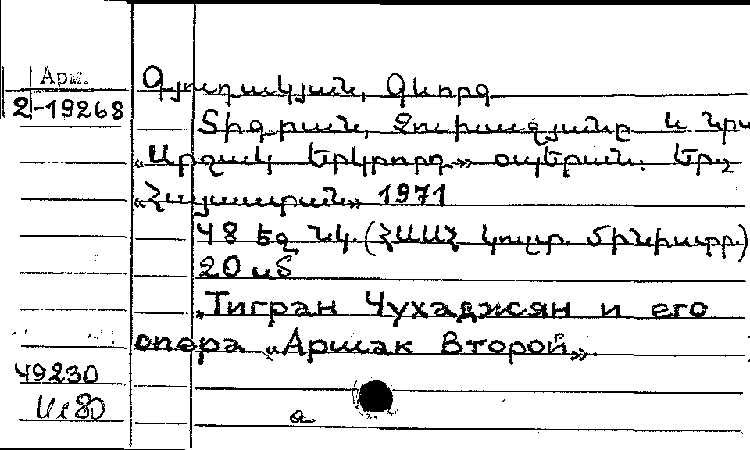 Арм.
2-19268
Գյուդակյան, Գևորգ
Տիգրան, Չուխաջյանը և նրա
«Արշակ Երկրորդ» օպերան. Եր.,
«Հայաստան» 1971
48 եջ նկ. (ՀՍՍՀ կուլտ. մինիստր.)
20 սմ
Тигран Чухаджян и его
опера «Аршак Второй».
49230
а